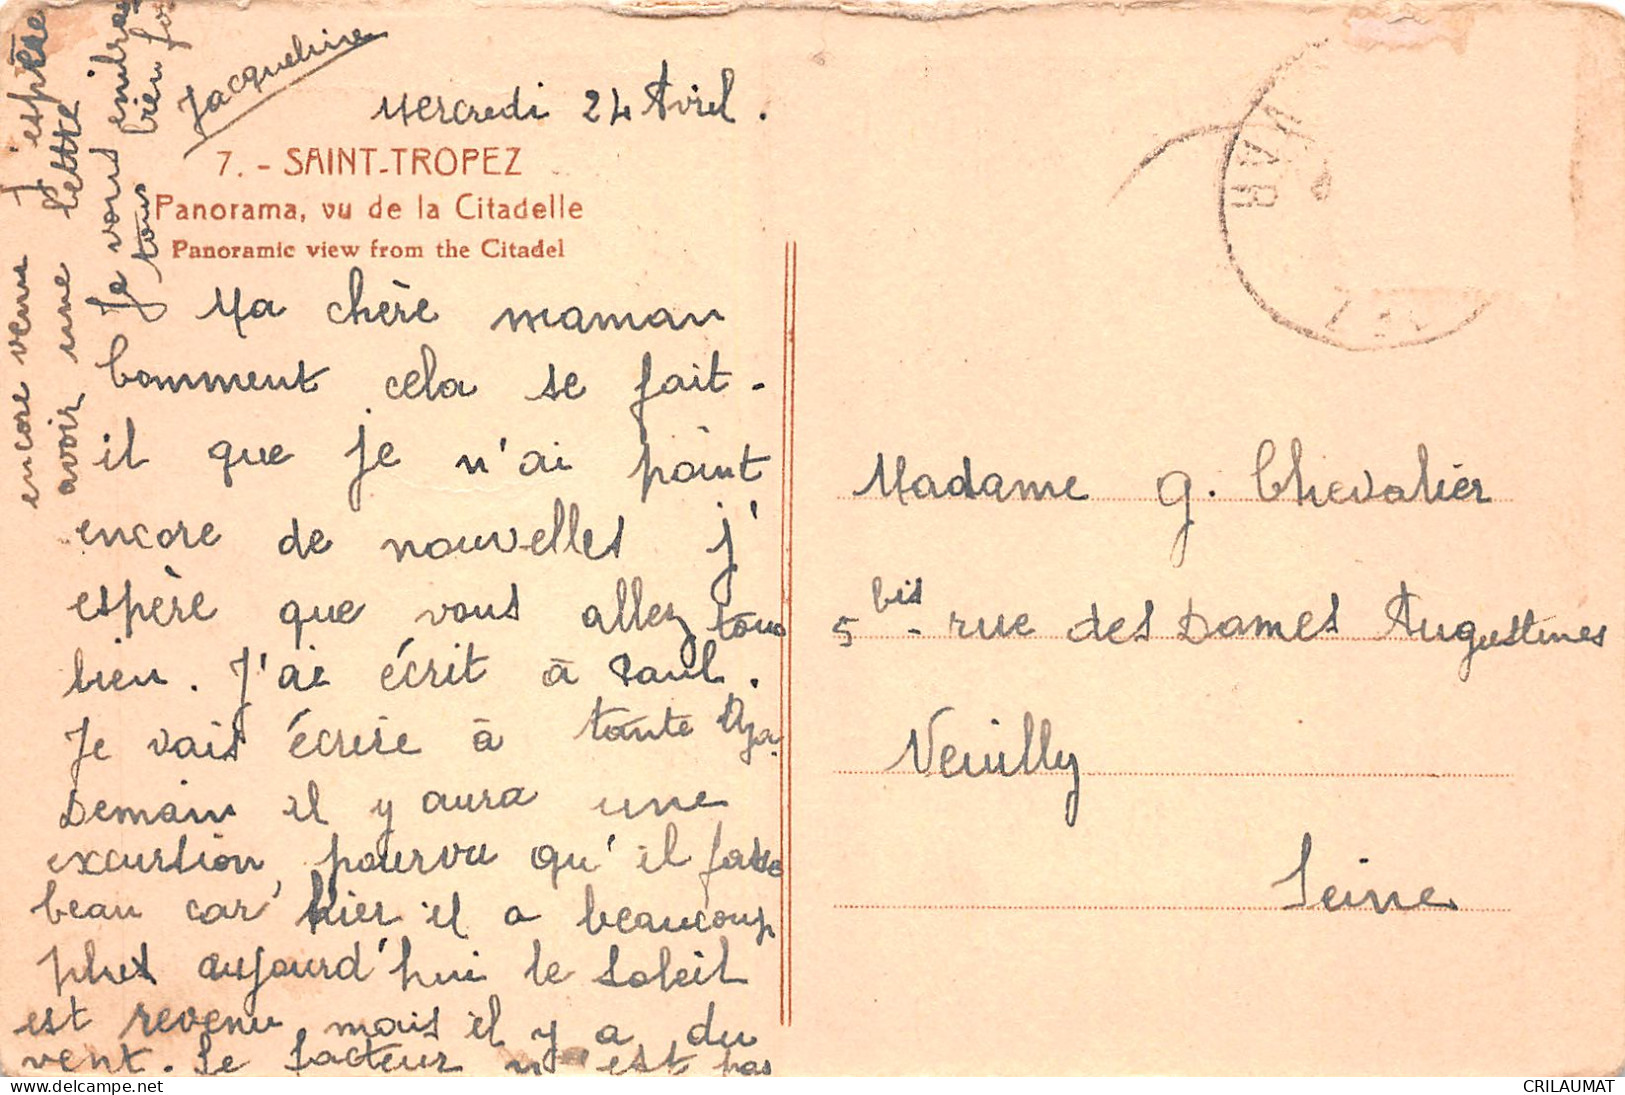 Mercredi 24 Avril.
7. - SAINT-TROPEZ
Panorama, vu de la Citadelle
Panoramic view from the Citadel
Ma chère maman
Comment cela se fait-
il que je n'ai point
encore de nouvelles j'
espère que vous allez tous
bien. J'ai écrit à Paul.
Je vais écrire à tante
Demain il y aura une
excursion, pourvu qu'il fasse
beau car hier il a beaucoup
plut aujourd'hui le soleil
est revenu mais il y a du
vent. Le facteur n'est pas
encore venu J'espère
avoir une lettre
Je vous embrasse
tous bien fort
Jacqueline
VAR
Madame G. Chevalier
5 bis - rue des Dames Augustines
Neuilly
Seine
CRILAUMAT